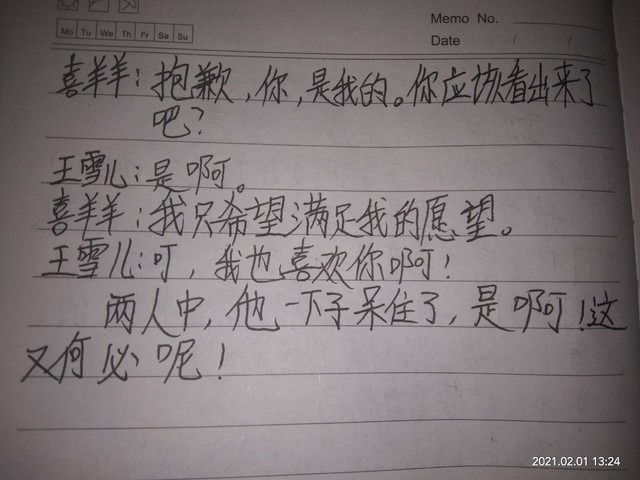 Memo No.
Mo Tu We Th Fr Sa Su
Date / /
喜羊羊：抱歉，你，是我的。你应该看出来了
吧？
王雪儿：是啊。
喜羊羊：我只希望满足我的愿望。
王雪儿：叮，我也喜欢你啊！
两人中，他一下子呆住了，是啊！这
又何必呢！
2021.02.01 13:24